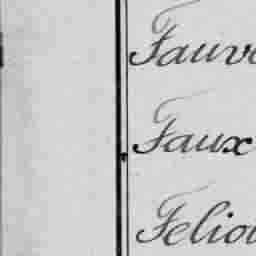 Fauve
Faux
Feliou